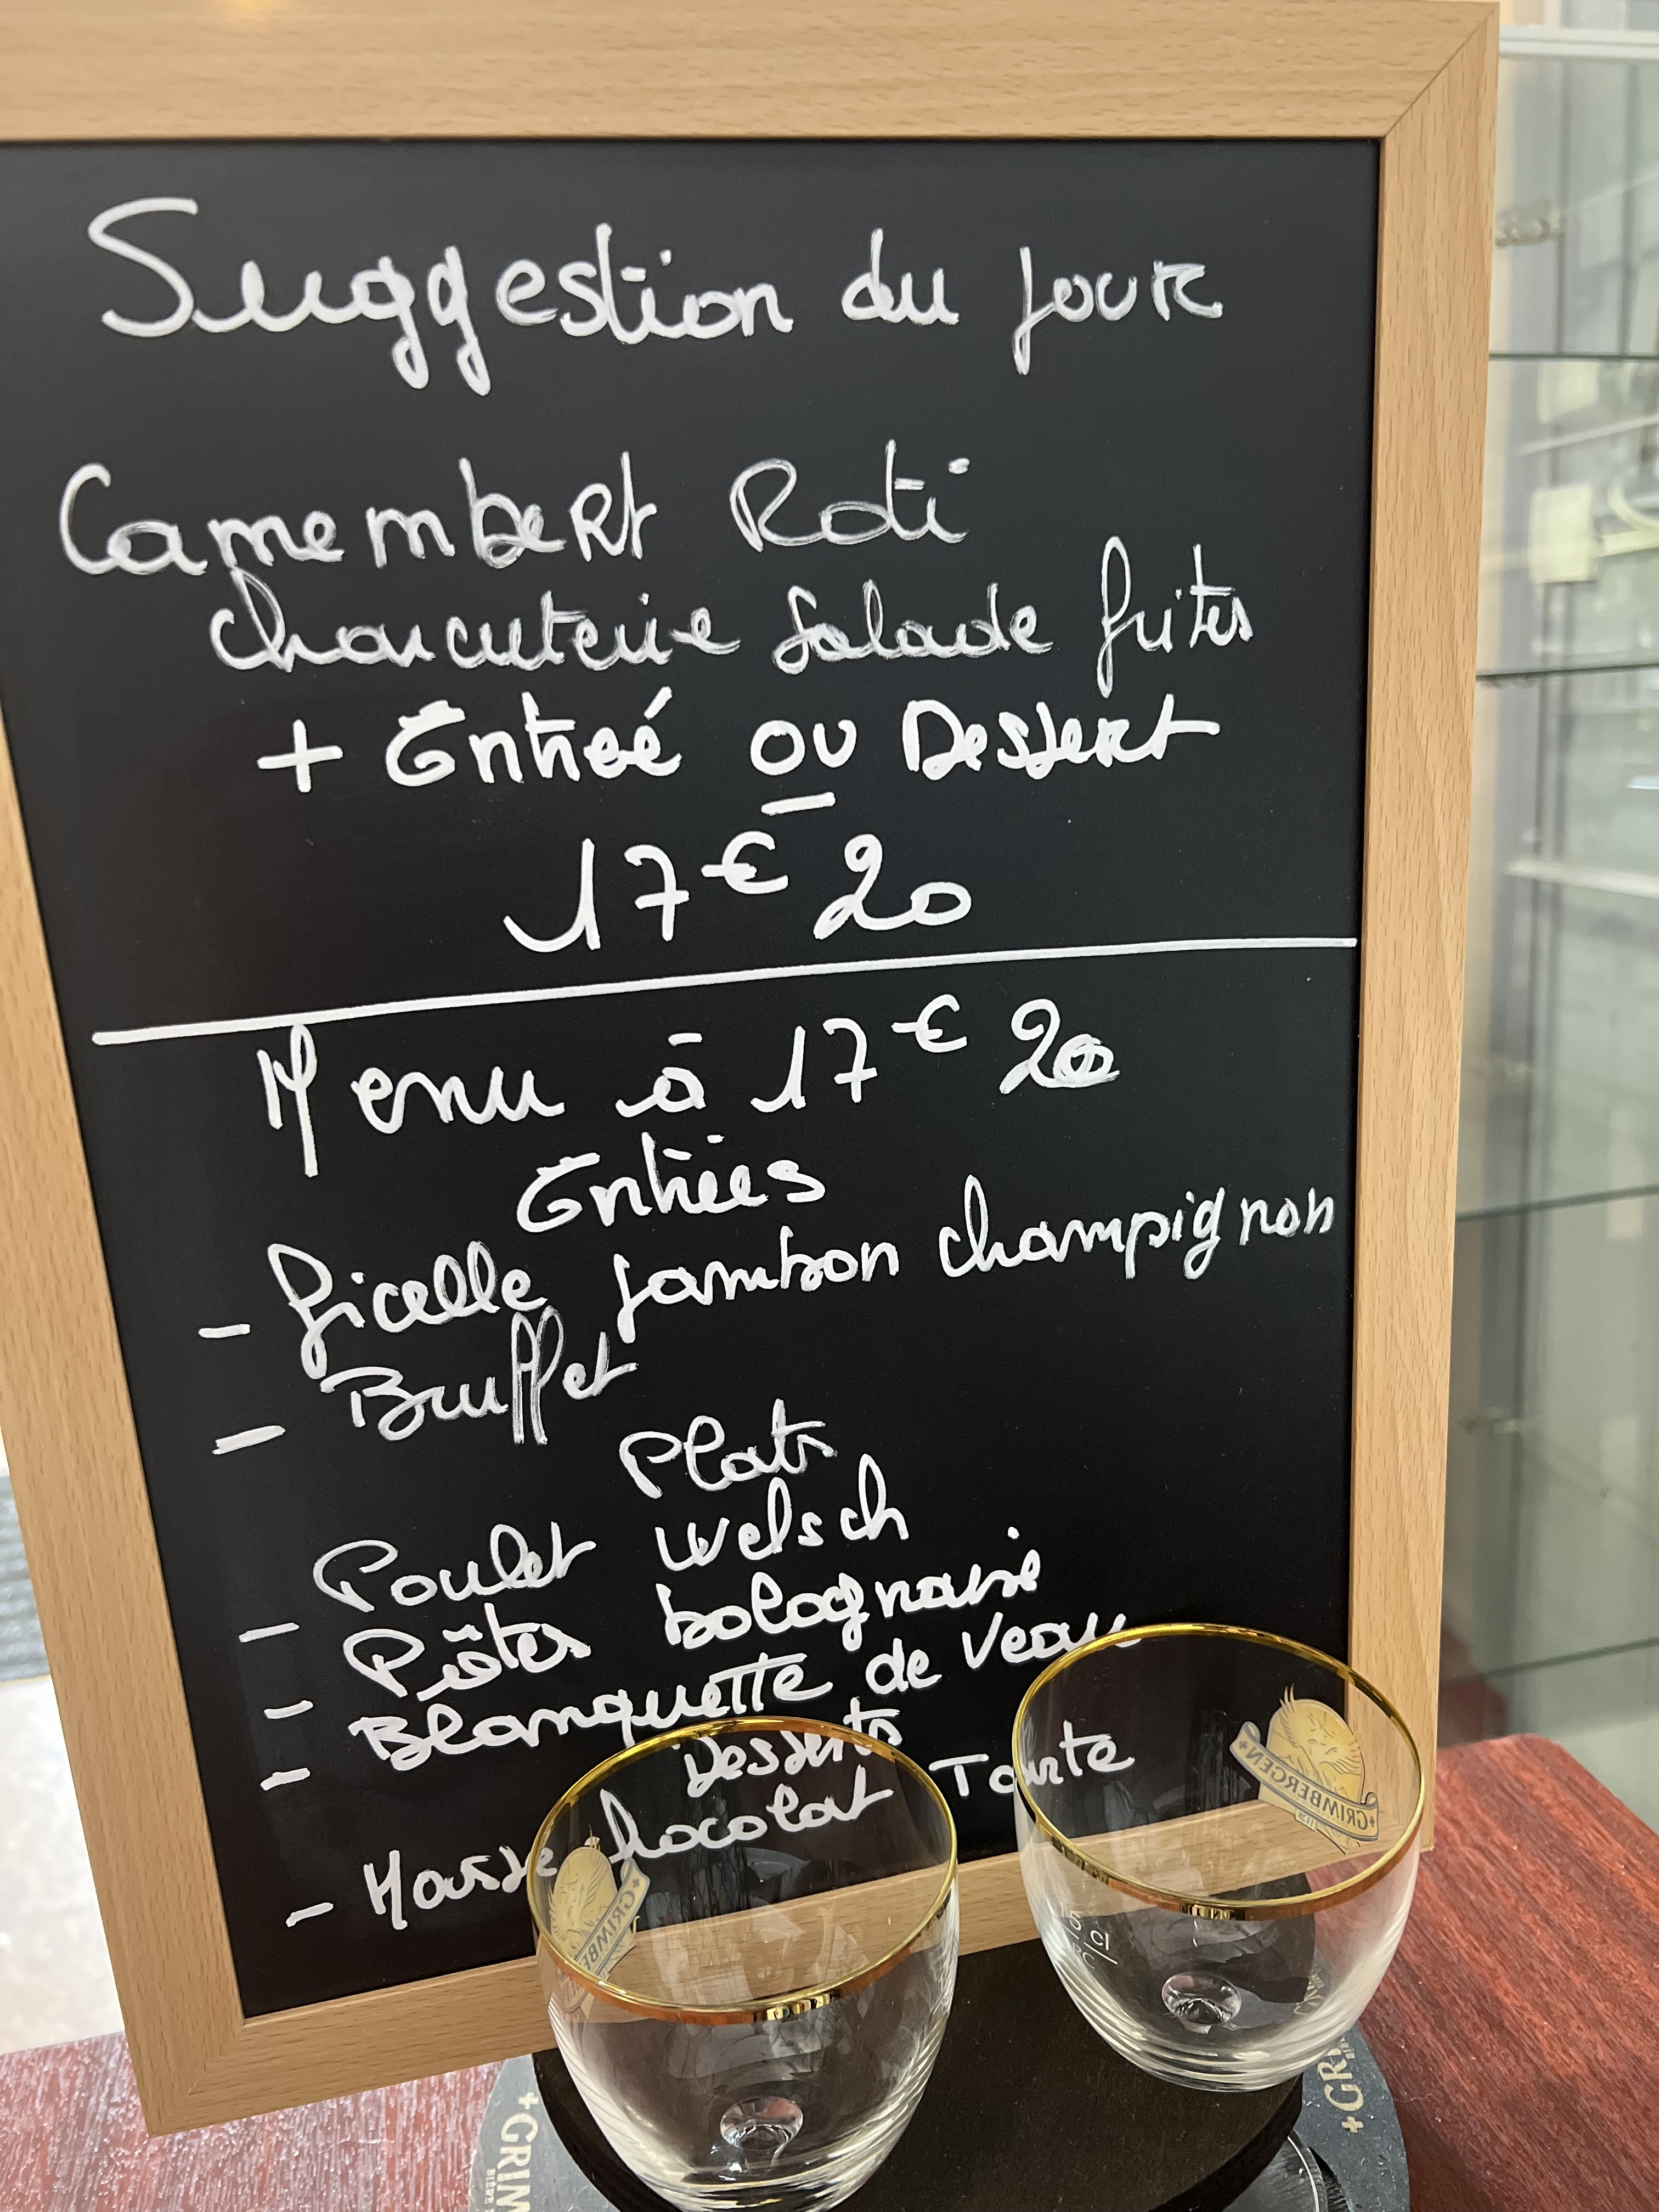 Suggestion du jour
Camembert Roti
charcuterie Salade frites
+ Entreé ou Dessert
17€20
Menu à 17€20
Entrées
- ficelle jambon champignon
- Buffet
Plats
- Poulet welsch
- Pâtes bolognaise
- Blanquette de Veau
Desserts
- Mousse chocolat Tarte
GRIMBERGEN
GRIMBE
+GRIM
+GRI